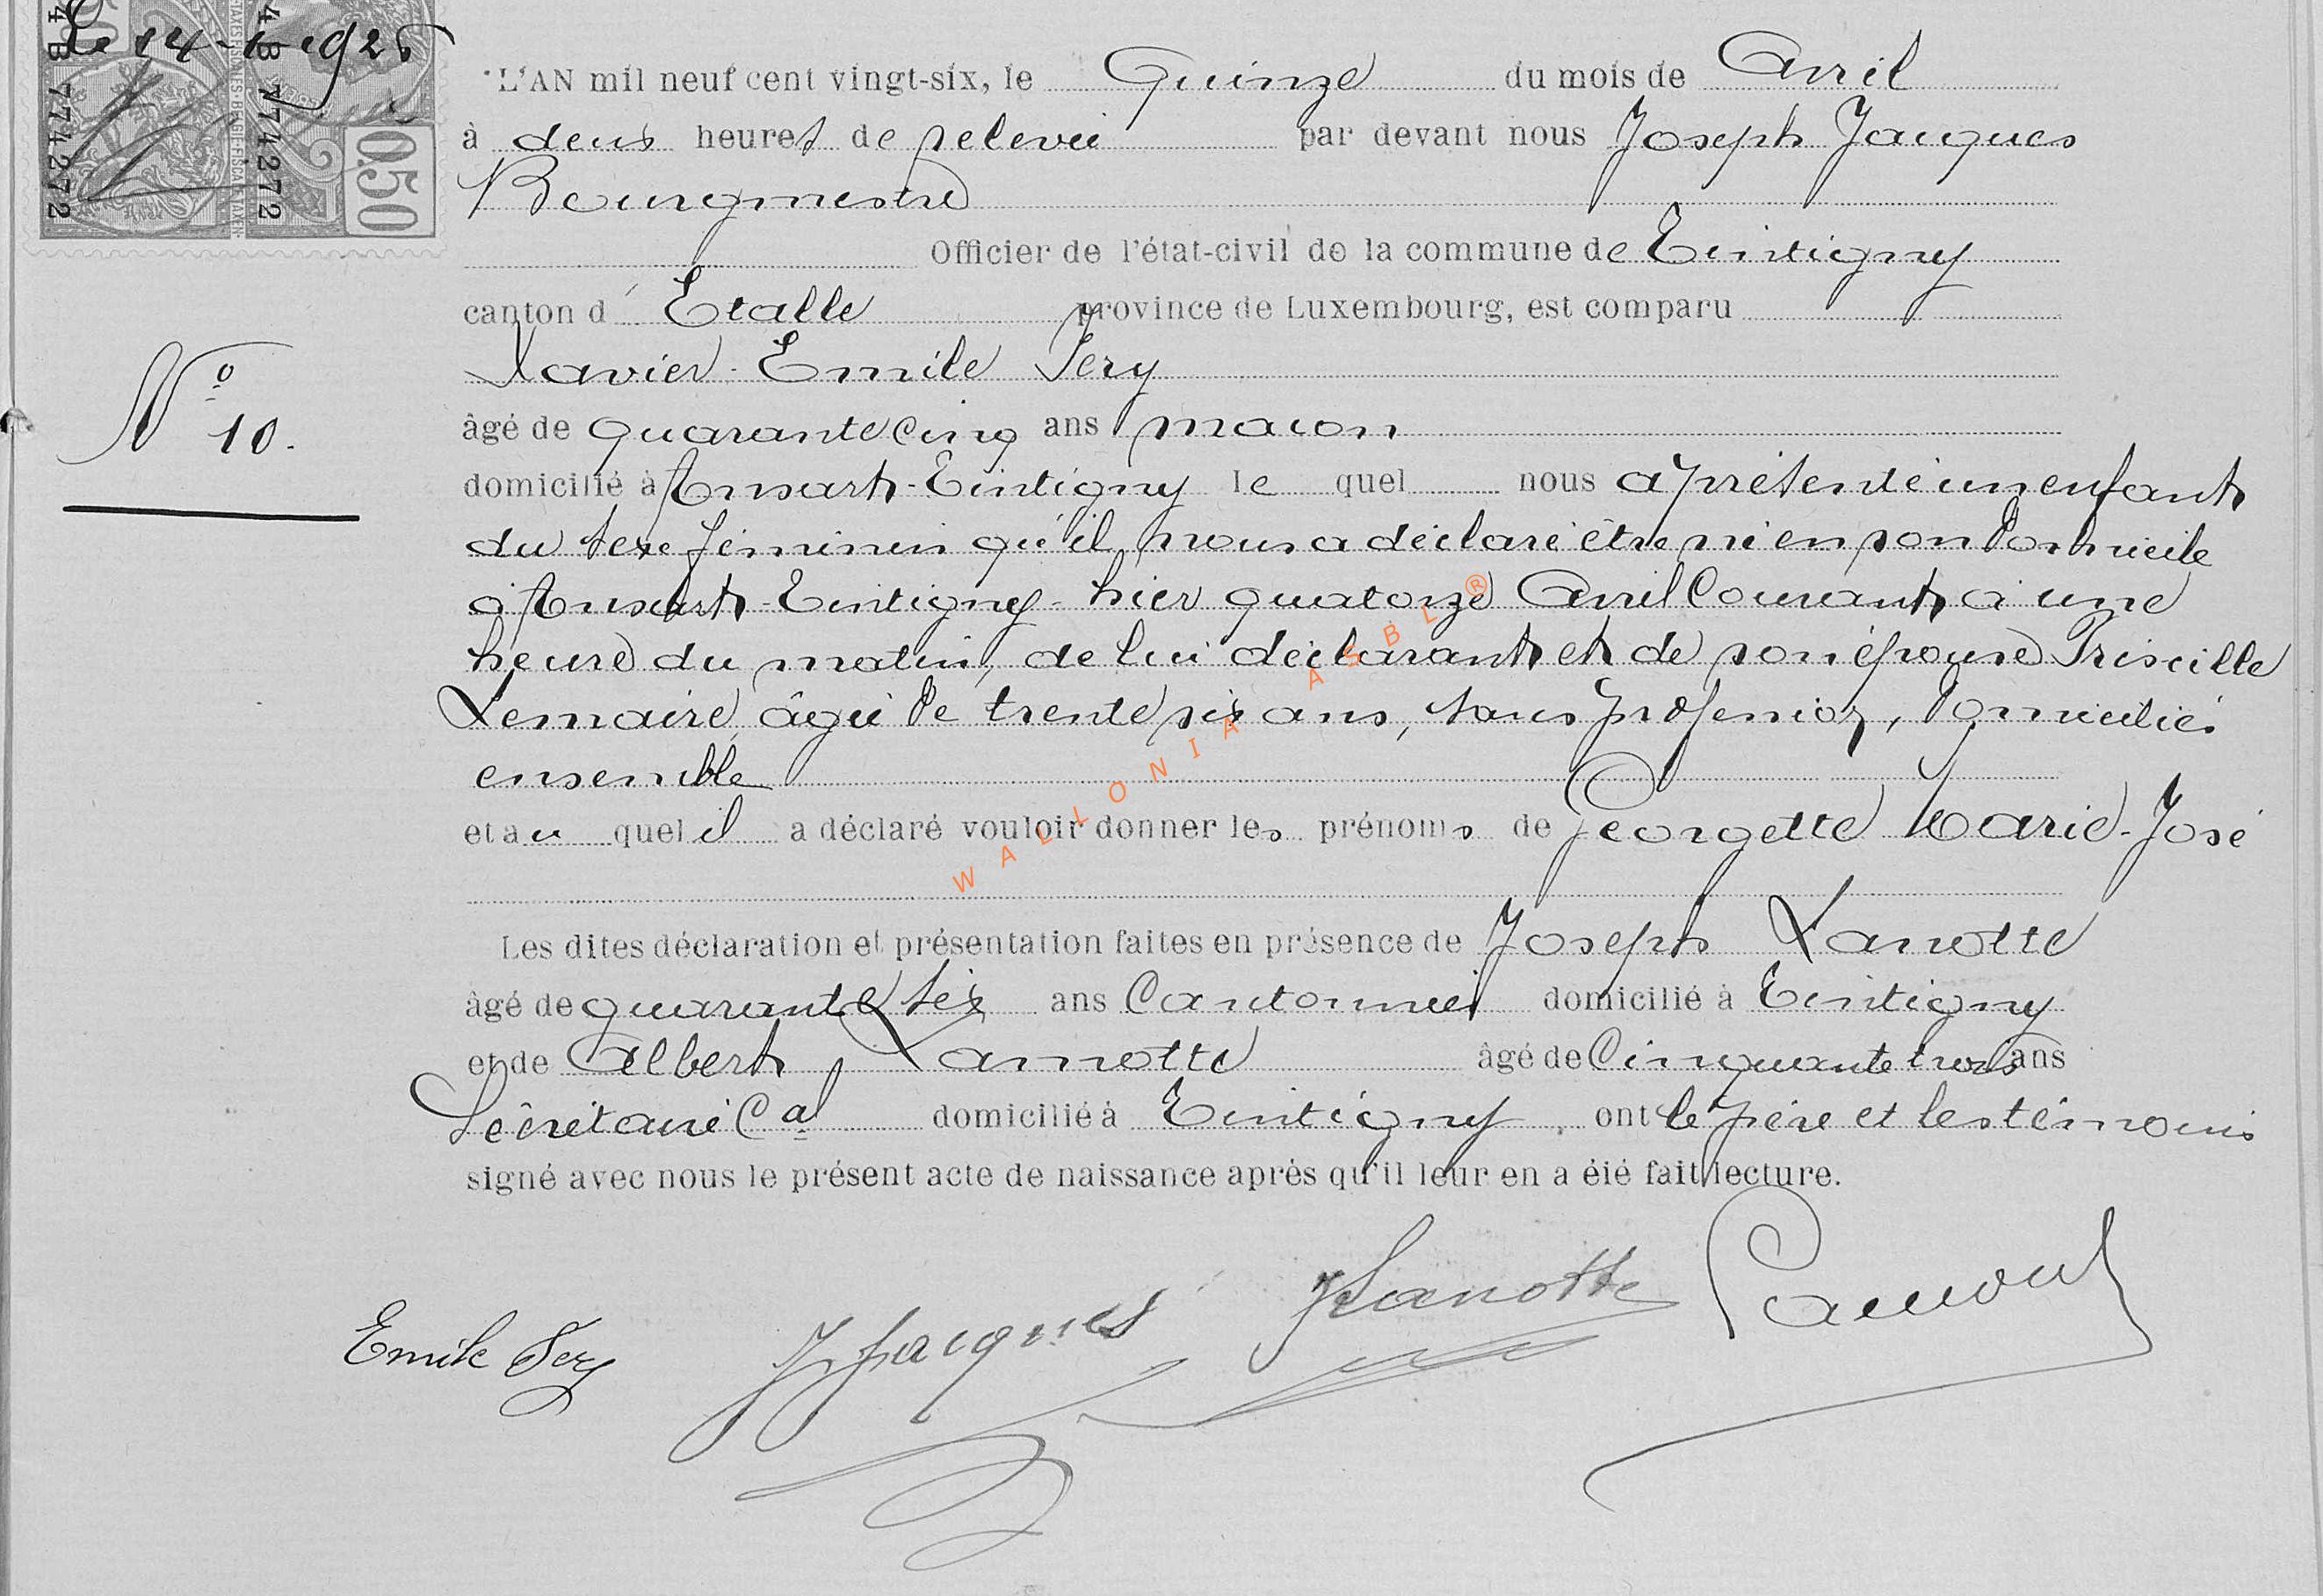 Le 14-1-1926
4 B 774272
4 B 774272
0.50
L'AN mil neuf cent vingt-six, le Quinze du mois de Avril
à deux heures de relevée par devant nous Joseph Jacques
Bourgmestre
Officier de l'état-civil de la commune de Tintigny
canton d'Etalle province de Luxembourg, est comparu
Xavier-Emile Jery
N° 10.
âgé de quarante cinq ans macon
domicilié à Ansart-Tintigny le quel nous a présenté un enfant
du sexe féminin qu'il nous a déclaré être né en son domicile
à Ansart-Tintigny-hier quatorze Avril Courant à une
heure du matin, de lui déclarant et de son épouse Priscille
Lemaire, âgée de trente six ans, sans profession, domiciliés
ensemble
et au quel il a déclaré vouloir donner les prénoms de Georgette Marie-José
Les dites déclaration et présentation faites en présence de Joseph Lanotte
âgé de quarante six ans Cantonnier domicilié à Tintigny
et de Albert Lamotte âgé de Cinquante trois ans
Secrétaire Cal domicilié à Tintigny, ont le père et les témoins
signé avec nous le présent acte de naissance après qu'il leur en a été fait lecture.
Emile Jery JJacques JLanotte
WALLONIA ASBL ®